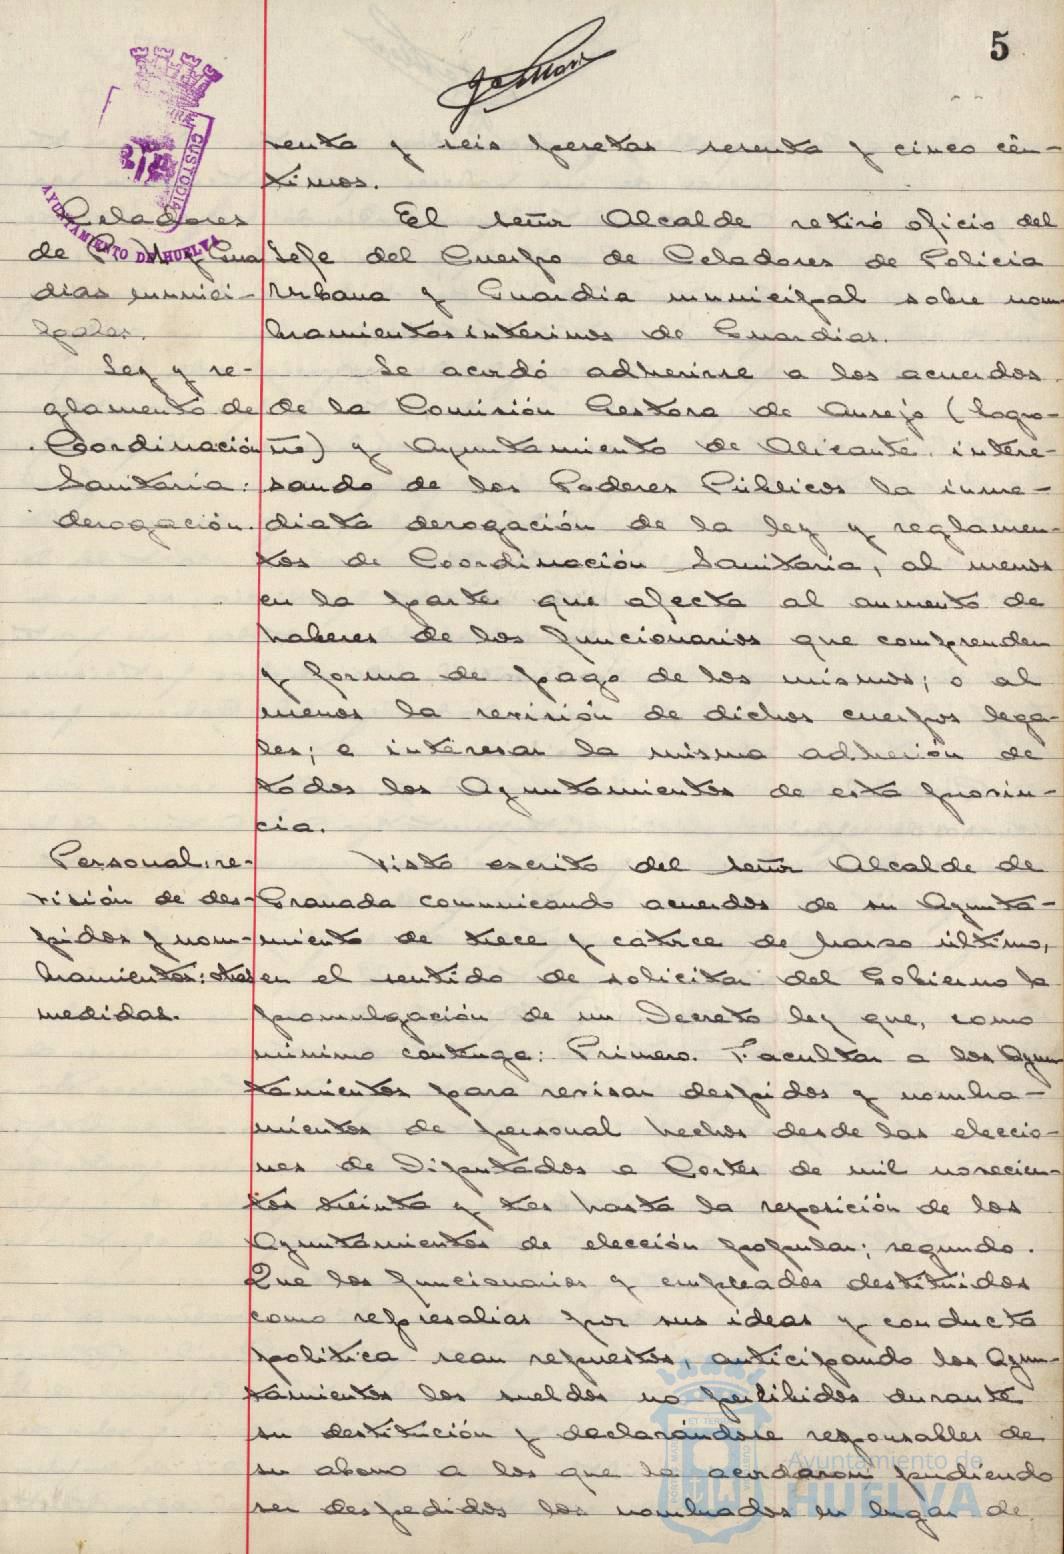 5
CUSTODIA
AYUNTAMIENTO DE HUELVA
renta y seis pesetas sesenta y cinco cén-
timos.
Celadores
de P. U. y Gua
dias munici-
pales.
El señor Alcalde retiró oficio del
Jefe del Cuerpo de Celadores de Policia
Urbana y Guardia municipal sobre nom
bramientos interinos de Guardias.
Ley y re-
glamento de
Coordinación
Sanitaria:
derogación.
Se acordó adherirse a los acuerdos
de la Comisión Gestora de Ausejo (Logro-
ño) y Ayuntamiento de Alicante intere-
sando de los Poderes Públicos la inme-
diata derogación de la ley y reglamen-
tos de Coordinación Sanitaria, al menos
en la parte que afecta al aumento de
haberes de los funcionarios que comprenden
y forma de pago de los mismos; o al
menos la revisión de dichos cuerpos lega-
les; e interesar la misma adhesión de
todos los Ayuntamientos de esta provin-
cia.
Personal: re-
visión de des-
pidos y nom-
bramientos: otras
medidas.
Visto escrito del señor Alcalde de
Granada comunicando acuerdos de su Ayunta-
miento de trece y catorce de marzo último,
en el sentido de solicitar del Gobierno la
promulgación de un Decreto ley que, como
minimo contenga: Primero. Facultar a los Ayun
tamientos para revisar despidos y nombra-
mientos de personal hechos desde las eleccio-
nes de Diputados a Cortes de mil novecien-
tos treinta y tres hasta la reposición de los
Ayuntamientos de elección popular; segundo.
Que los funcionarios y empleados destituidos
como represalias por sus ideas y conducta
politica sean repuestos, anticipando los Ayun-
tamientos los sueldos no percibidos durante
su destitución y declarándose responsables de
su abono a los que la acordaron pudiendo
ser despedidos los nombrados en lugar de
Ayuntamiento de
HUELVA